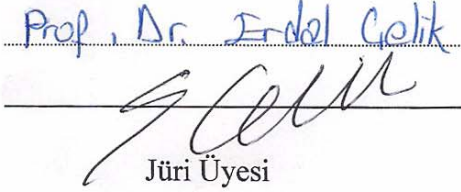 Prof. Dr. Erdal Çelik
Jüri Üyesi